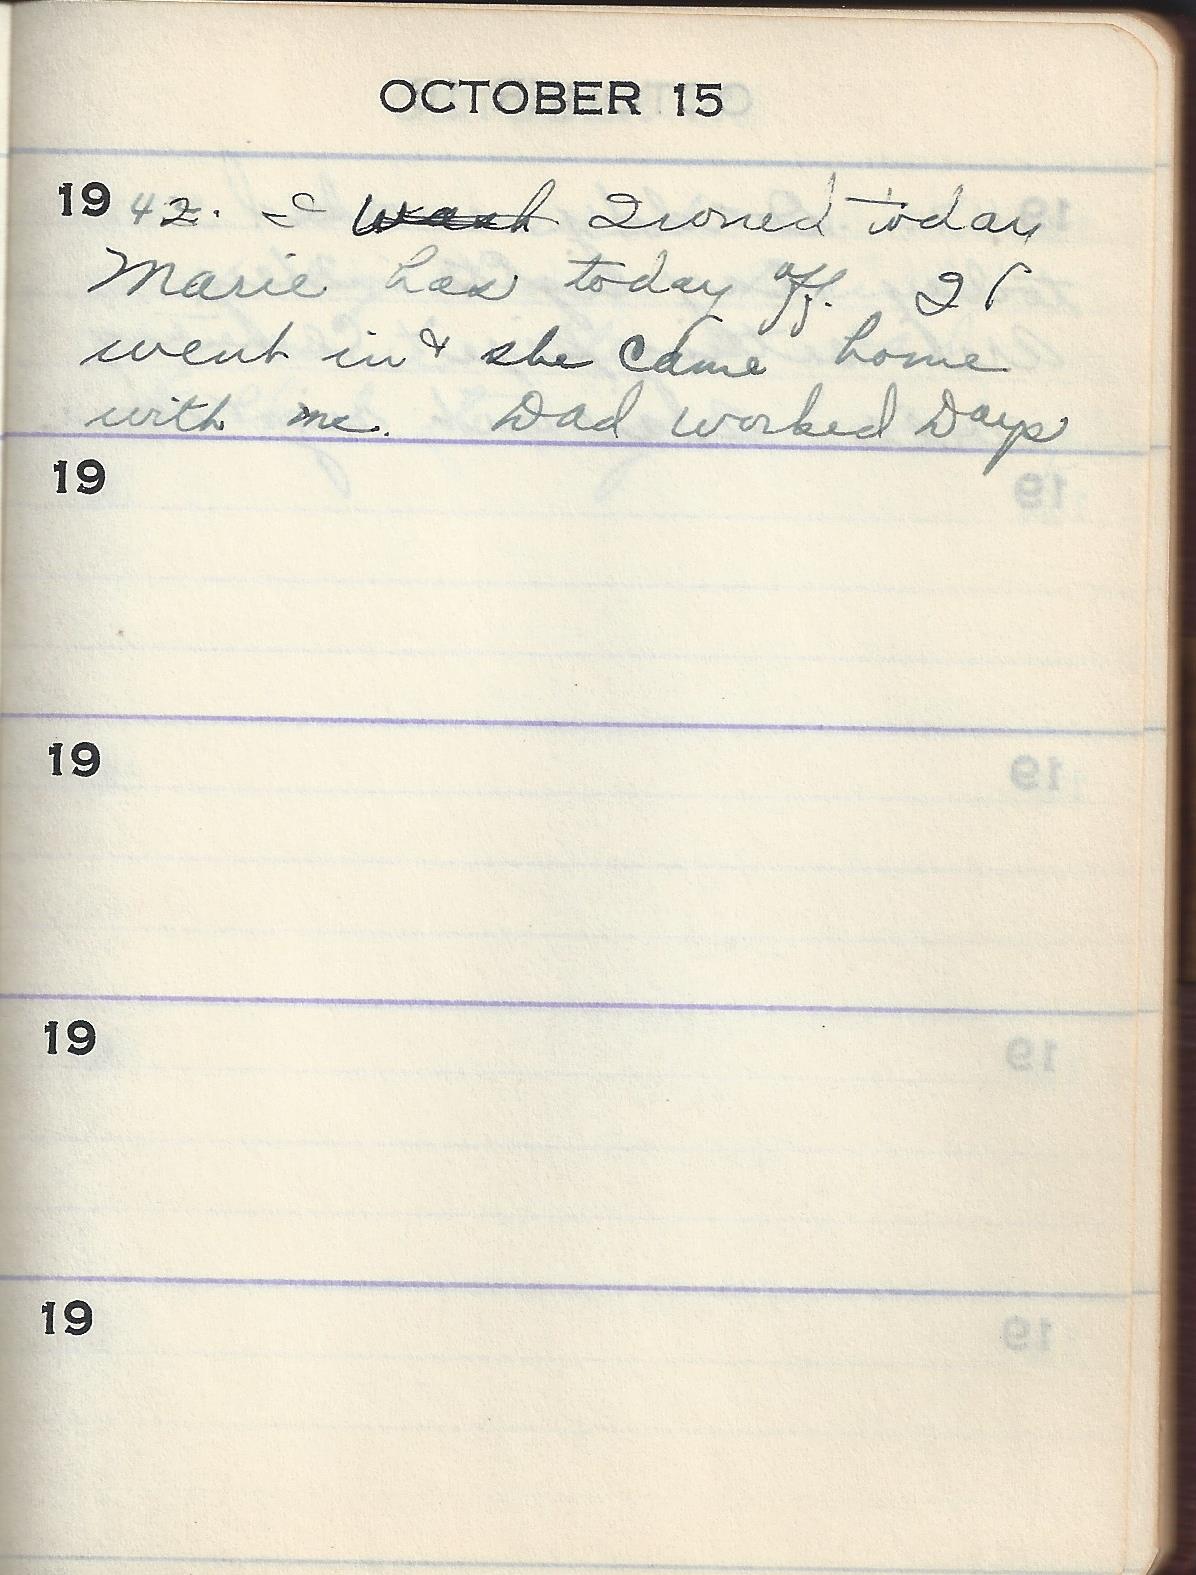 OCTOBER 15
19 42. I wash Ironed today
Marie has today off. I
went in & she came home
with me. Dad worked Days
19
19
19
19